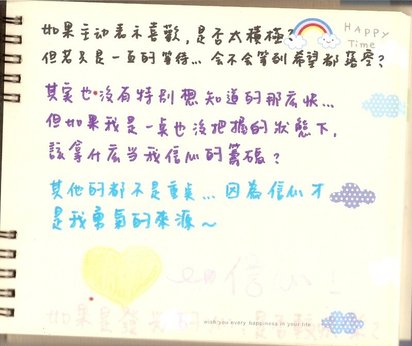 如果主動表示喜歡，是否太積極？
HAPPY
Time
但若只是一直的等待... 會不會等到希望都落空？
其實也沒有特別想知道的那麼快...
但如果我是一點也沒把握的狀態下，
該拿什麼当我信心的籌碼？
其他的都不是重點... 因為信心才
是我勇氣的來源～
信心！
wish you every happiness in your life